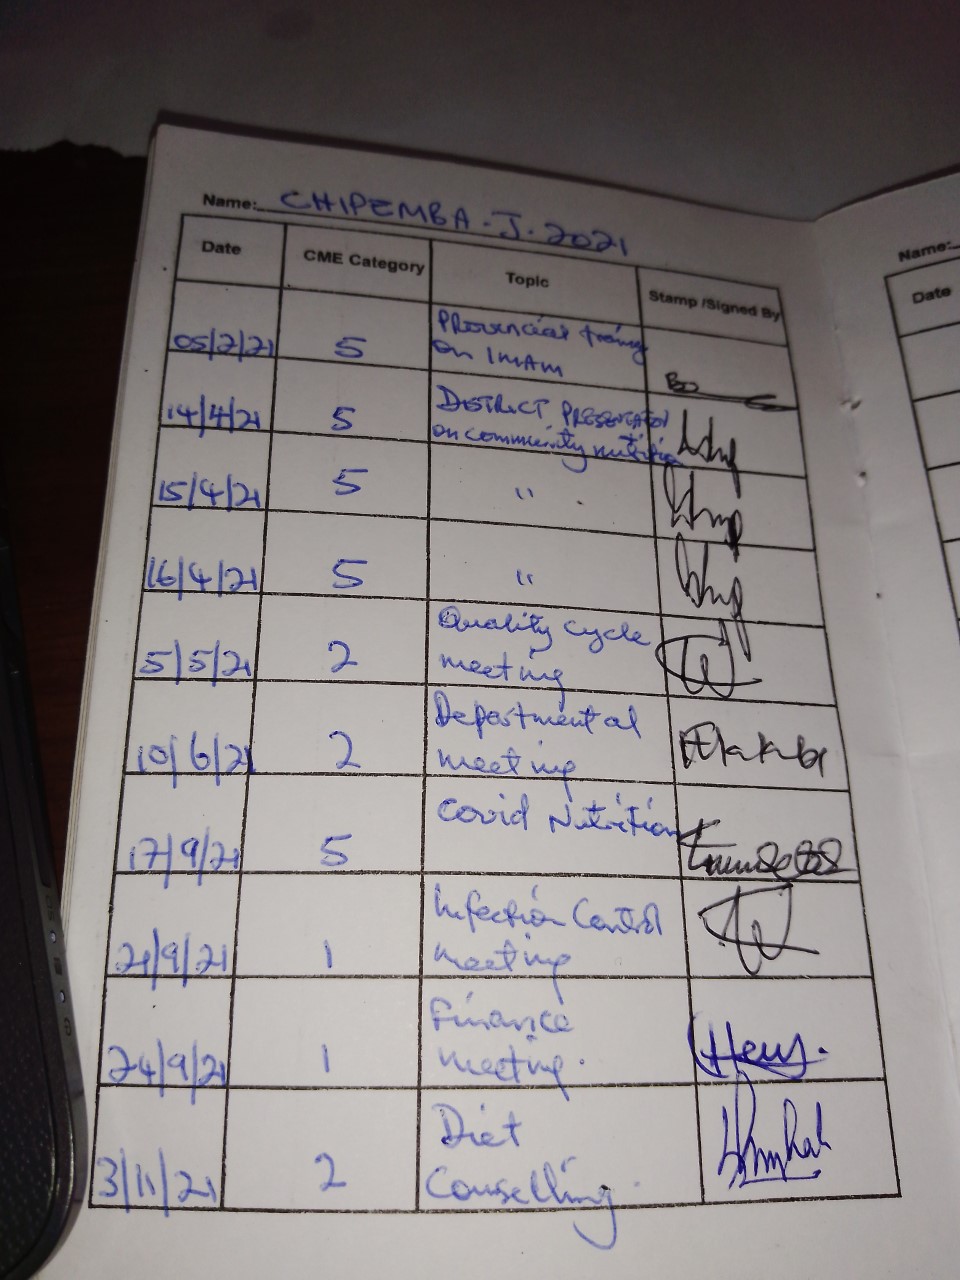 Name: CHIPEMBA. J. 2021
Date CME Category Topic Stamp /Signed By
05/2/21 5 Provincial traing
on IMAM
14/4/21 5 DISTRICT PRESENTATION
on community nutrition
15/4/21 5 "
16/4/21 5 "
5/5/21 2 Quality cycle
meeting
10/6/21 2 Departmental
meeting
17/9/21 5 Covid Nutrition
21/9/21 1 Infection Control
meeting
24/9/21 1 Finance
meeting.
3/11/21 2 Diet
Couselling.
Name:
Date